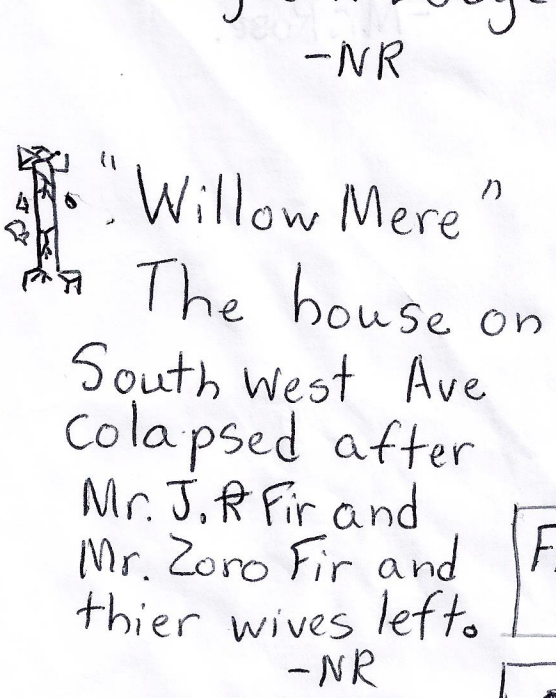 -NR
"Willow Mere"
The house on
South West Ave
colapsed after
Mr. J.R Fir and
Mr. Zoro Fir and
thier wives left.
-NR